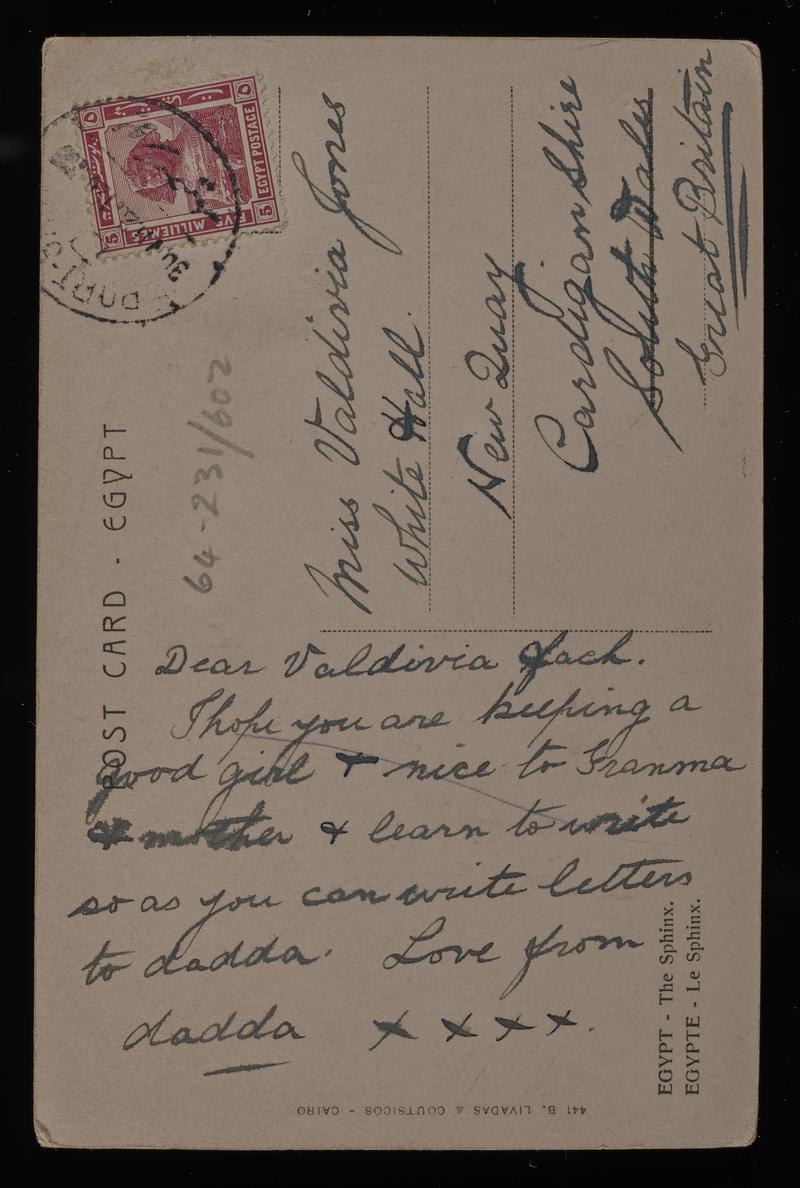 POST CARD - EGYPT
EGYPT POSTAGE
FIVE MILLIEMES
5 5
PORT
64-231/602
Miss Valdivia Jones
White Hall
New Quay
Cardiganshire
South Wales
Great Britain
Dear Valdivia fach.
I hope you are keeping a
good girl + nice to Granma
+ mother + learn to write
so as you can write letters
to dadda. Love from
dadda x x x x.
EGYPT - The Sphinx.
EGYPTE - Le Sphinx.
441 B. LIVADAS & COUTSICOS - CAIRO